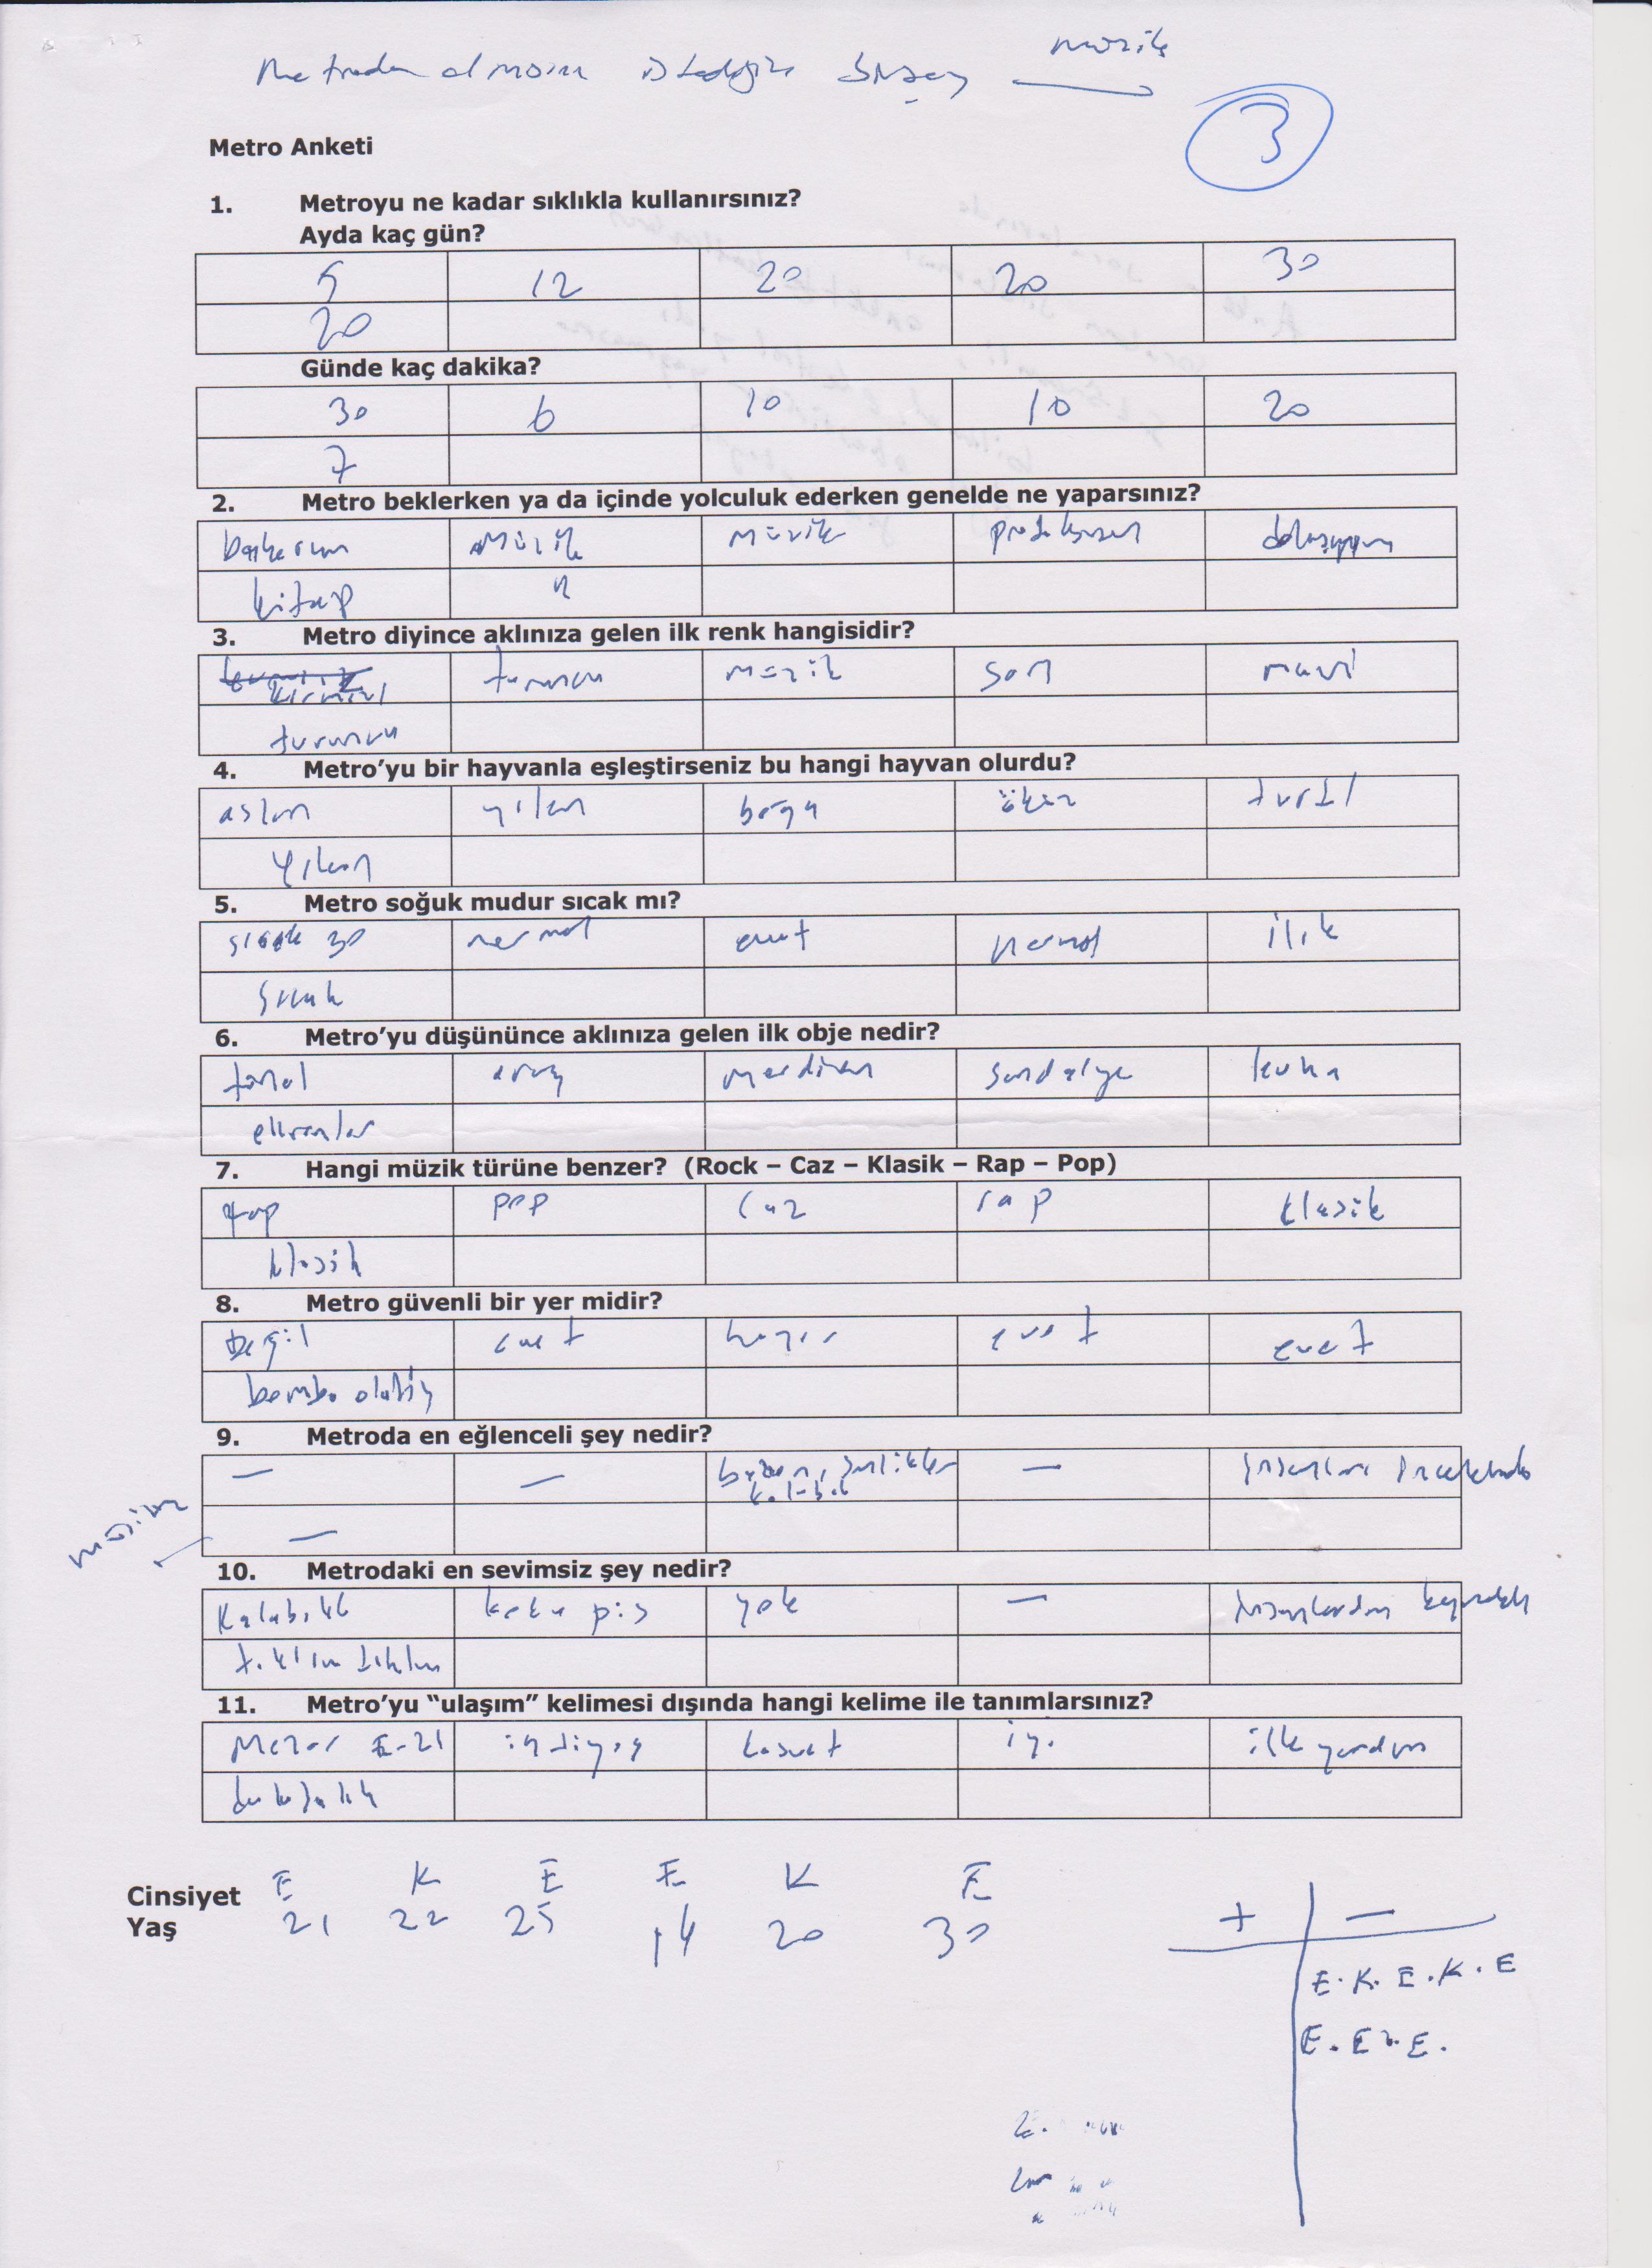 müzik
istediğin birşey
3
Metro Anketi
1. Metroyu ne kadar sıklıkla kullanırsınız?
Ayda kaç gün?
5 12 20 20 30
20
Günde kaç dakika?
30 6 10 10 20
7
2. Metro beklerken ya da içinde yolculuk ederken genelde ne yaparsınız?
müzik müzik
kitap
3. Metro diyince aklınıza gelen ilk renk hangisidir?
kırmızı turuncu müzik sarı mavi
turuncu
4. Metro'yu bir hayvanla eşleştirseniz bu hangi hayvan olurdu?
aslan yılan boğa öküz tırtıl
Yılan
5. Metro soğuk mudur sıcak mı?
sıcak 30 normal evet normal ılık
sıcak
6. Metro'yu düşününce aklınıza gelen ilk obje nedir?
tünel araç merdiven sandalye
ekranlar
7. Hangi müzik türüne benzer? (Rock – Caz – Klasik – Rap – Pop)
pop caz rap klasik
klasik
8. Metro güvenli bir yer midir?
Değil evet hayır evet evet
bomba
9. Metroda en eğlenceli şey nedir?
— — — insanları
—
10. Metrodaki en sevimsiz şey nedir?
Kalabalık koku pis yok — insanlardan
tıklım tıklım
11. Metro'yu "ulaşım" kelimesi dışında hangi kelime ile tanımlarsınız?
E-21 ihtiyaç iyi ilk yardım
Cinsiyet E K E E K E
Yaş 21 22 25 14 20 30
+ —
E. K. E. K. E
E. E E.